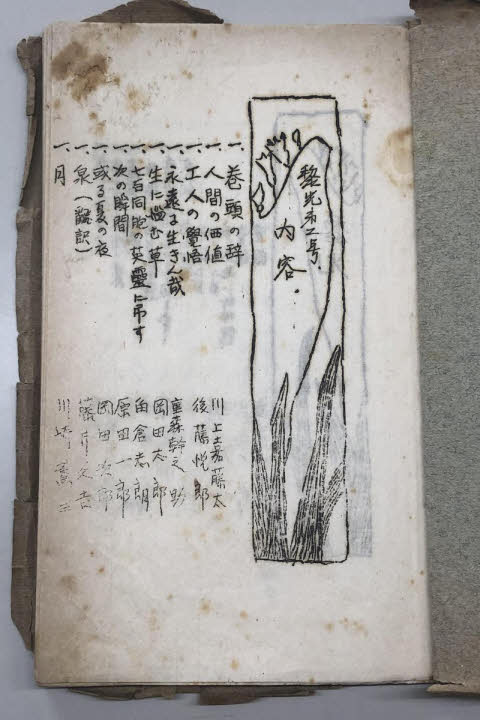 黎光第二号.
内容.
一、巻頭の辞
一、人間の価値
一、工人の覺悟
一、永遠に生きん哉
一、生に悩む草
一、七百同胞の英靈に吊す
一、次の瞬間
一、或る夏の夜
一、泉(飜訳)
一、月
川上嘉藤太
後藤悦郎
重森幹之助
岡田太郎
角倉志朗
原田一郎
岡田次郎
藤井文吉
川崎